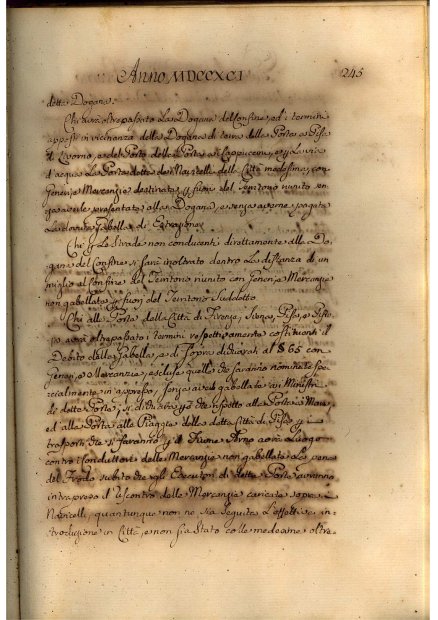 Anno MDCCXCI 245
detta Dogana.
Chi avrà oltrepassato La Dogana del Confine, ed i termini
apposti in vicinanza della Dogana di terra delle Porte a Pisa
di Livorno, e del Porto della Porta a' Cappuccini, e per la via
d'acqua La Porta detta dei Navicelli della Città medesima, con
Generi, e Mercanzie destinate per fuori del Territorio riunito sen-
za averle presentate alla Dogana, e senza averne pagata
La dovuta Gabella di Estrazione
Chi per Le Strade non conducenti direttamente alla Do-
gana di Confine si sarà inoltrato dentro La distanza di un
miglio al Confine del Territorio riunito con Generi, e Mercanzie
non gabellate per fuori del Territorio Suddetto
Chi alle Porte delle Città di Firenze, Siena, Pisa, e Pisto-
ia avrà oltrepassato i termini respettivamente costituenti il
Debito della Gabella, e di Sopra dichiarati al § 65 con
Generi, e Mercanzie, escluse quelle che saranno nominate spe-
cialmente in appresso, senza averle gabellate ai Ministri
di dette Porte; si dichiara però che rispetto alla Porta a Mare,
ed alla Porta alle Piagge della detta Città di Pisa per i
trasporti che si faranno per il Fiume Arno avrà Luogo
contro i Conduttori delle Mercanzie non gabellate La pena
del Frodo subito che gli Esecutori di dette Porte avranno
intrapreso il riscontro delle Mercanzie caricate sopra i
Navicelli, quantunque non ne sia seguita L'effettiva in-
troduzione in Città, e non sia stato colle medesime oltre-